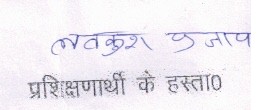 लवकुश प्रजाप
प्रशिक्षणार्थी के हस्ता0